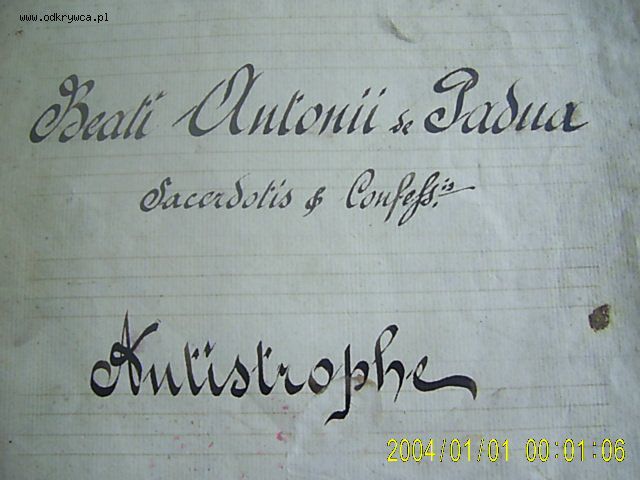 www.odkrywca.pl
Beati Antonii de Padua
Sacerdotis & Confess.is
Antistrophe
2004/01/01 00:01:06